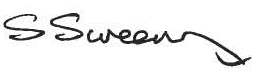 S Sweeny